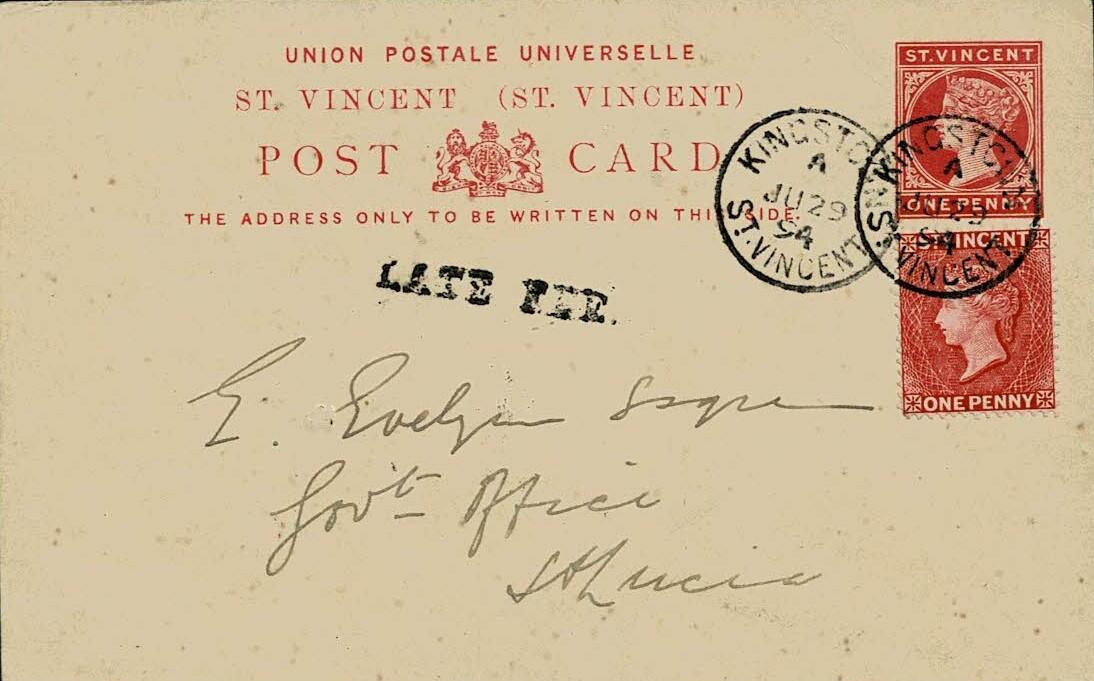 UNION POSTALE UNIVERSELLE
ST. VINCENT (ST. VINCENT)
POST CARD
THE ADDRESS ONLY TO BE WRITTEN ON THIS SIDE.
ST. VINCENT
ONE PENNY
KINGSTOWN
A
JU 29
94
ST. VINCENT
KINGSTOWN
A
JU 29
94
ST. VINCENT
ST. VINCENT
ONE PENNY
LATE FEE.
E. Evelyn Esqre
Govt Office
St Lucia